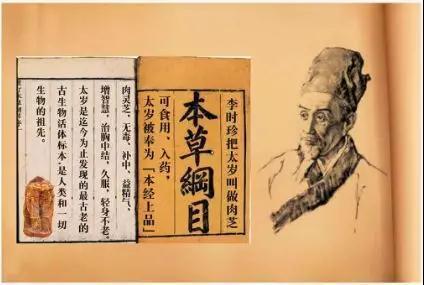 李时珍把太岁叫做肉芝
本草綱目
可食用、入药，
太岁被奉为「本经上品」
肉灵芝、无毒、补中、益精气、
增智慧，治胸中结，久服，轻身不老。
太岁是迄今为止发现的最古老的
古生物活体标本，是人类和一切
生物的祖先。